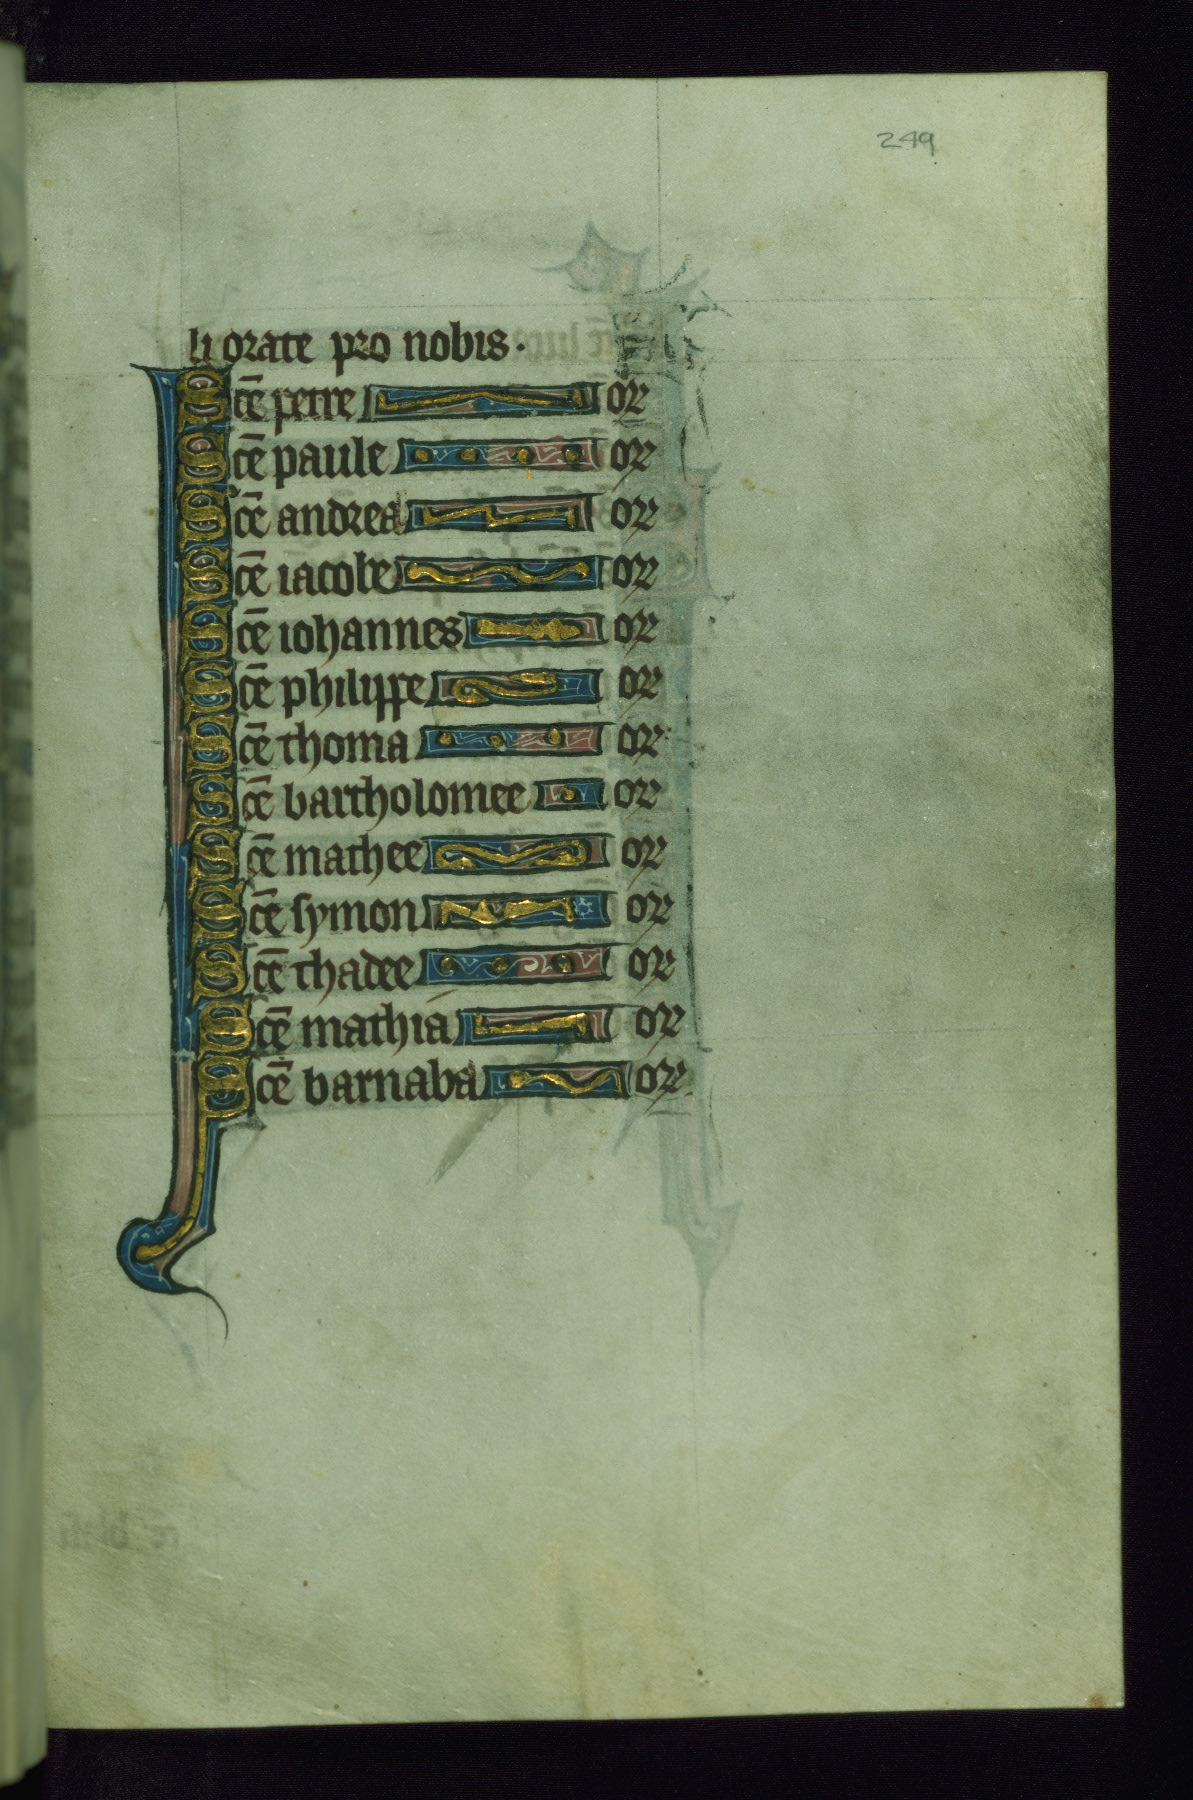 249
li orate pro nobis.
Sce̅ petre or
Sce̅ paule or
Sce̅ andrea or
Sce̅ iacobe or
Sce̅ iohannes or
Sce̅ philippe or
Sce̅ thoma or
Sce̅ bartholomee or
Sce̅ mathee or
Sce̅ symon or
Sce̅ thadee or
Sce̅ mathia or
Sce̅ barnaba or